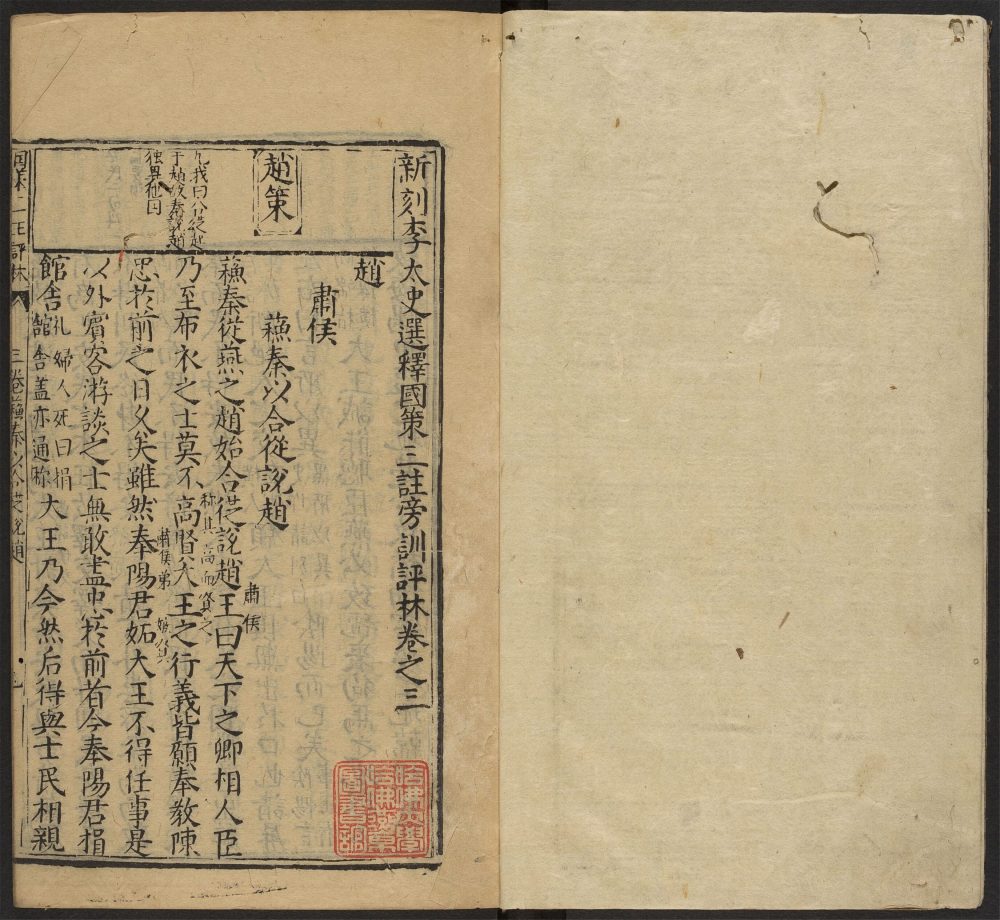 新刻李太史選釋國策三註旁訓評林卷之三
趙策
趙
肅侯
蘓秦以合從說趙
蘓秦從燕之趙始合從說趙王曰天下之卿相人臣
肅侯
乃至布衣之士莫不高賢大王之行義皆願奉教陳
称其高而賢之
忠於前之日乆矣雖然奉陽君妬大王不得任事是
肅侯弟
以外賓客游談之士無敢盡忠於前者今奉陽君捐
館舍礼婦人死曰捐館舎盖亦通称大王乃今然后得與士民相親
三卷蘓秦以合從說趙
哈佛大學
哈佛燕京
圖書館